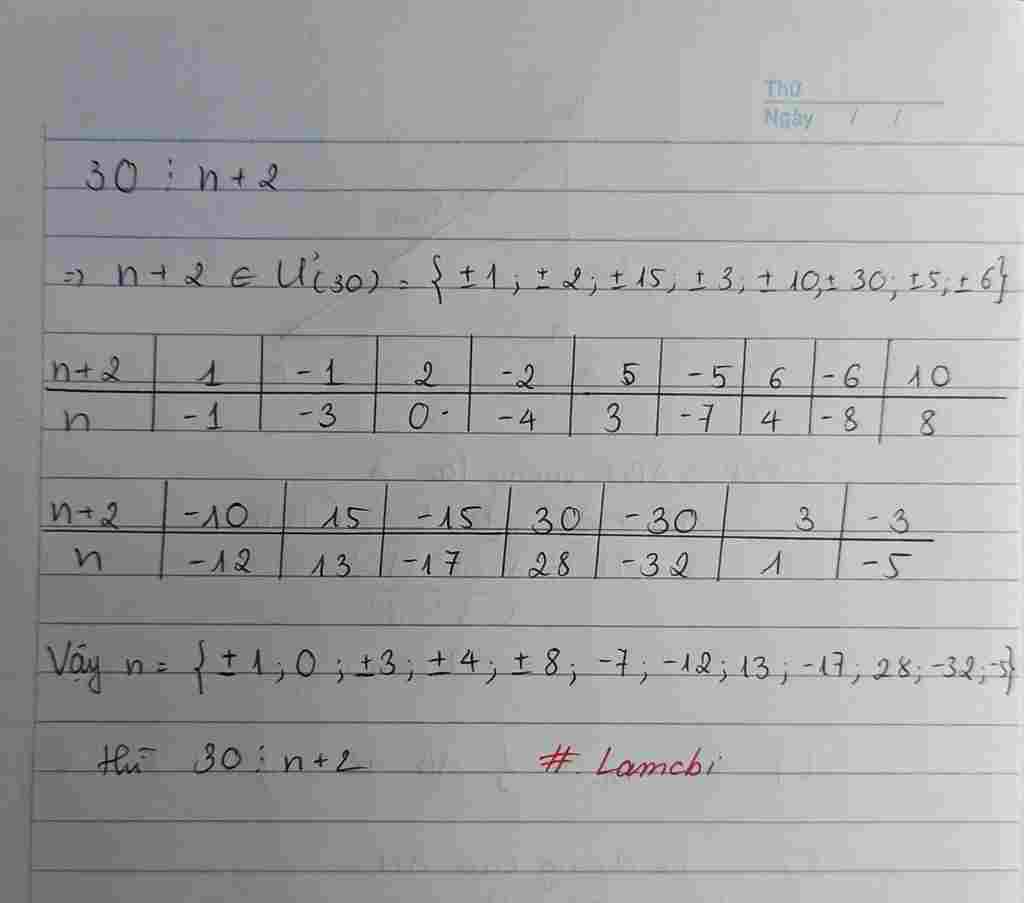 Thứ
Ngày / /
30 ⋮ n+2
⇒ n+2 ∈ Ư(30) = {±1; ±2; ±15; ±3; ±10; ±30; ±5; ±6}
n+2 1 -1 2 -2 5 -5 6 -6 10
n -1 -3 0 -4 3 -7 4 -8 8
n+2 -10 15 -15 30 -30 3 -3
n -12 13 -17 28 -32 1 -5
Vậy n = {±1; 0; ±3; ±4; ±8; -7; -12; 13; -17; 28; -32; -5}
thì 30 ⋮ n+2 # Lamchi